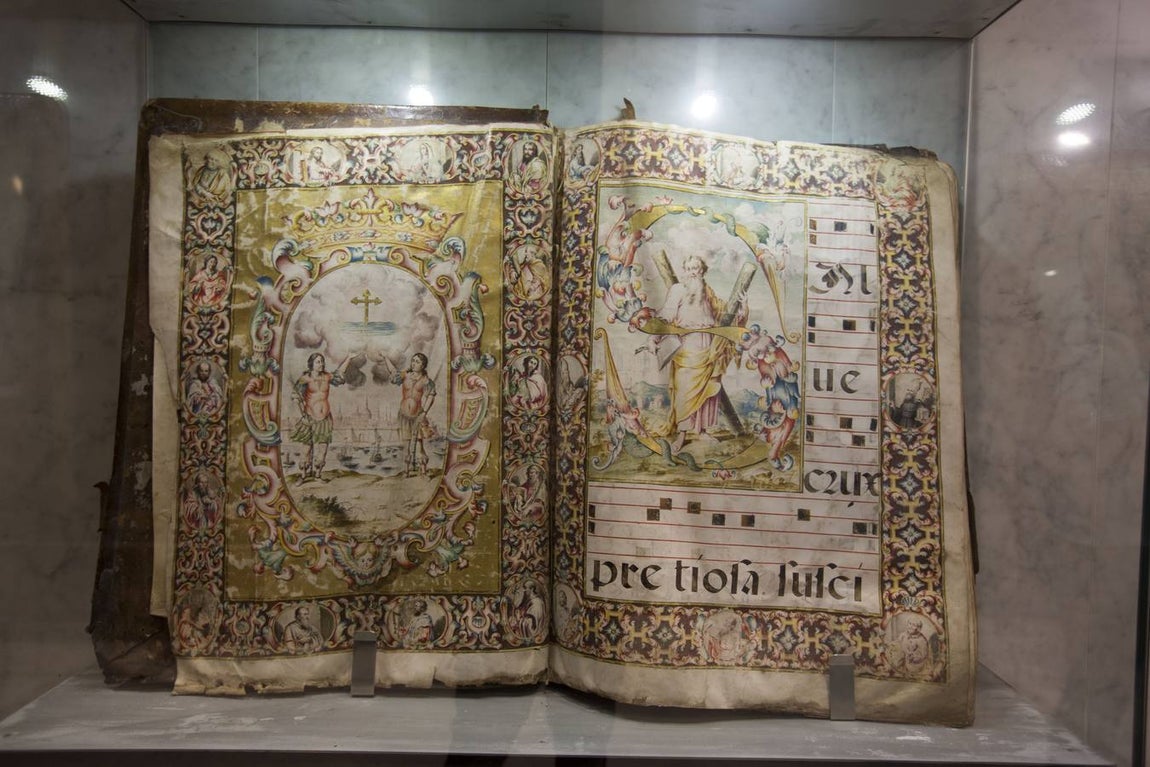 SAl
ue
crux
pre tioſa. ſuſci